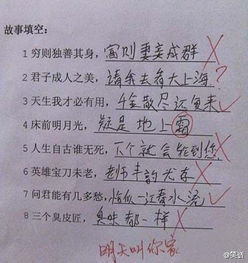 故事填空:
1 穷则独善其身,富则妻妾成群
2 君子成人之美,请你去看大上海?
3 天生我才必有用,千金散尽还复来
4 床前明月光,疑是地上霜
5 人生自古谁无死,下个就会轮到你
6 英雄宝刀未老,老师丰韵犹存
7 问君能有几多愁,恰似一江春水流
8 三个臭皮匠,臭味都一样
明天叫你家
@笑话